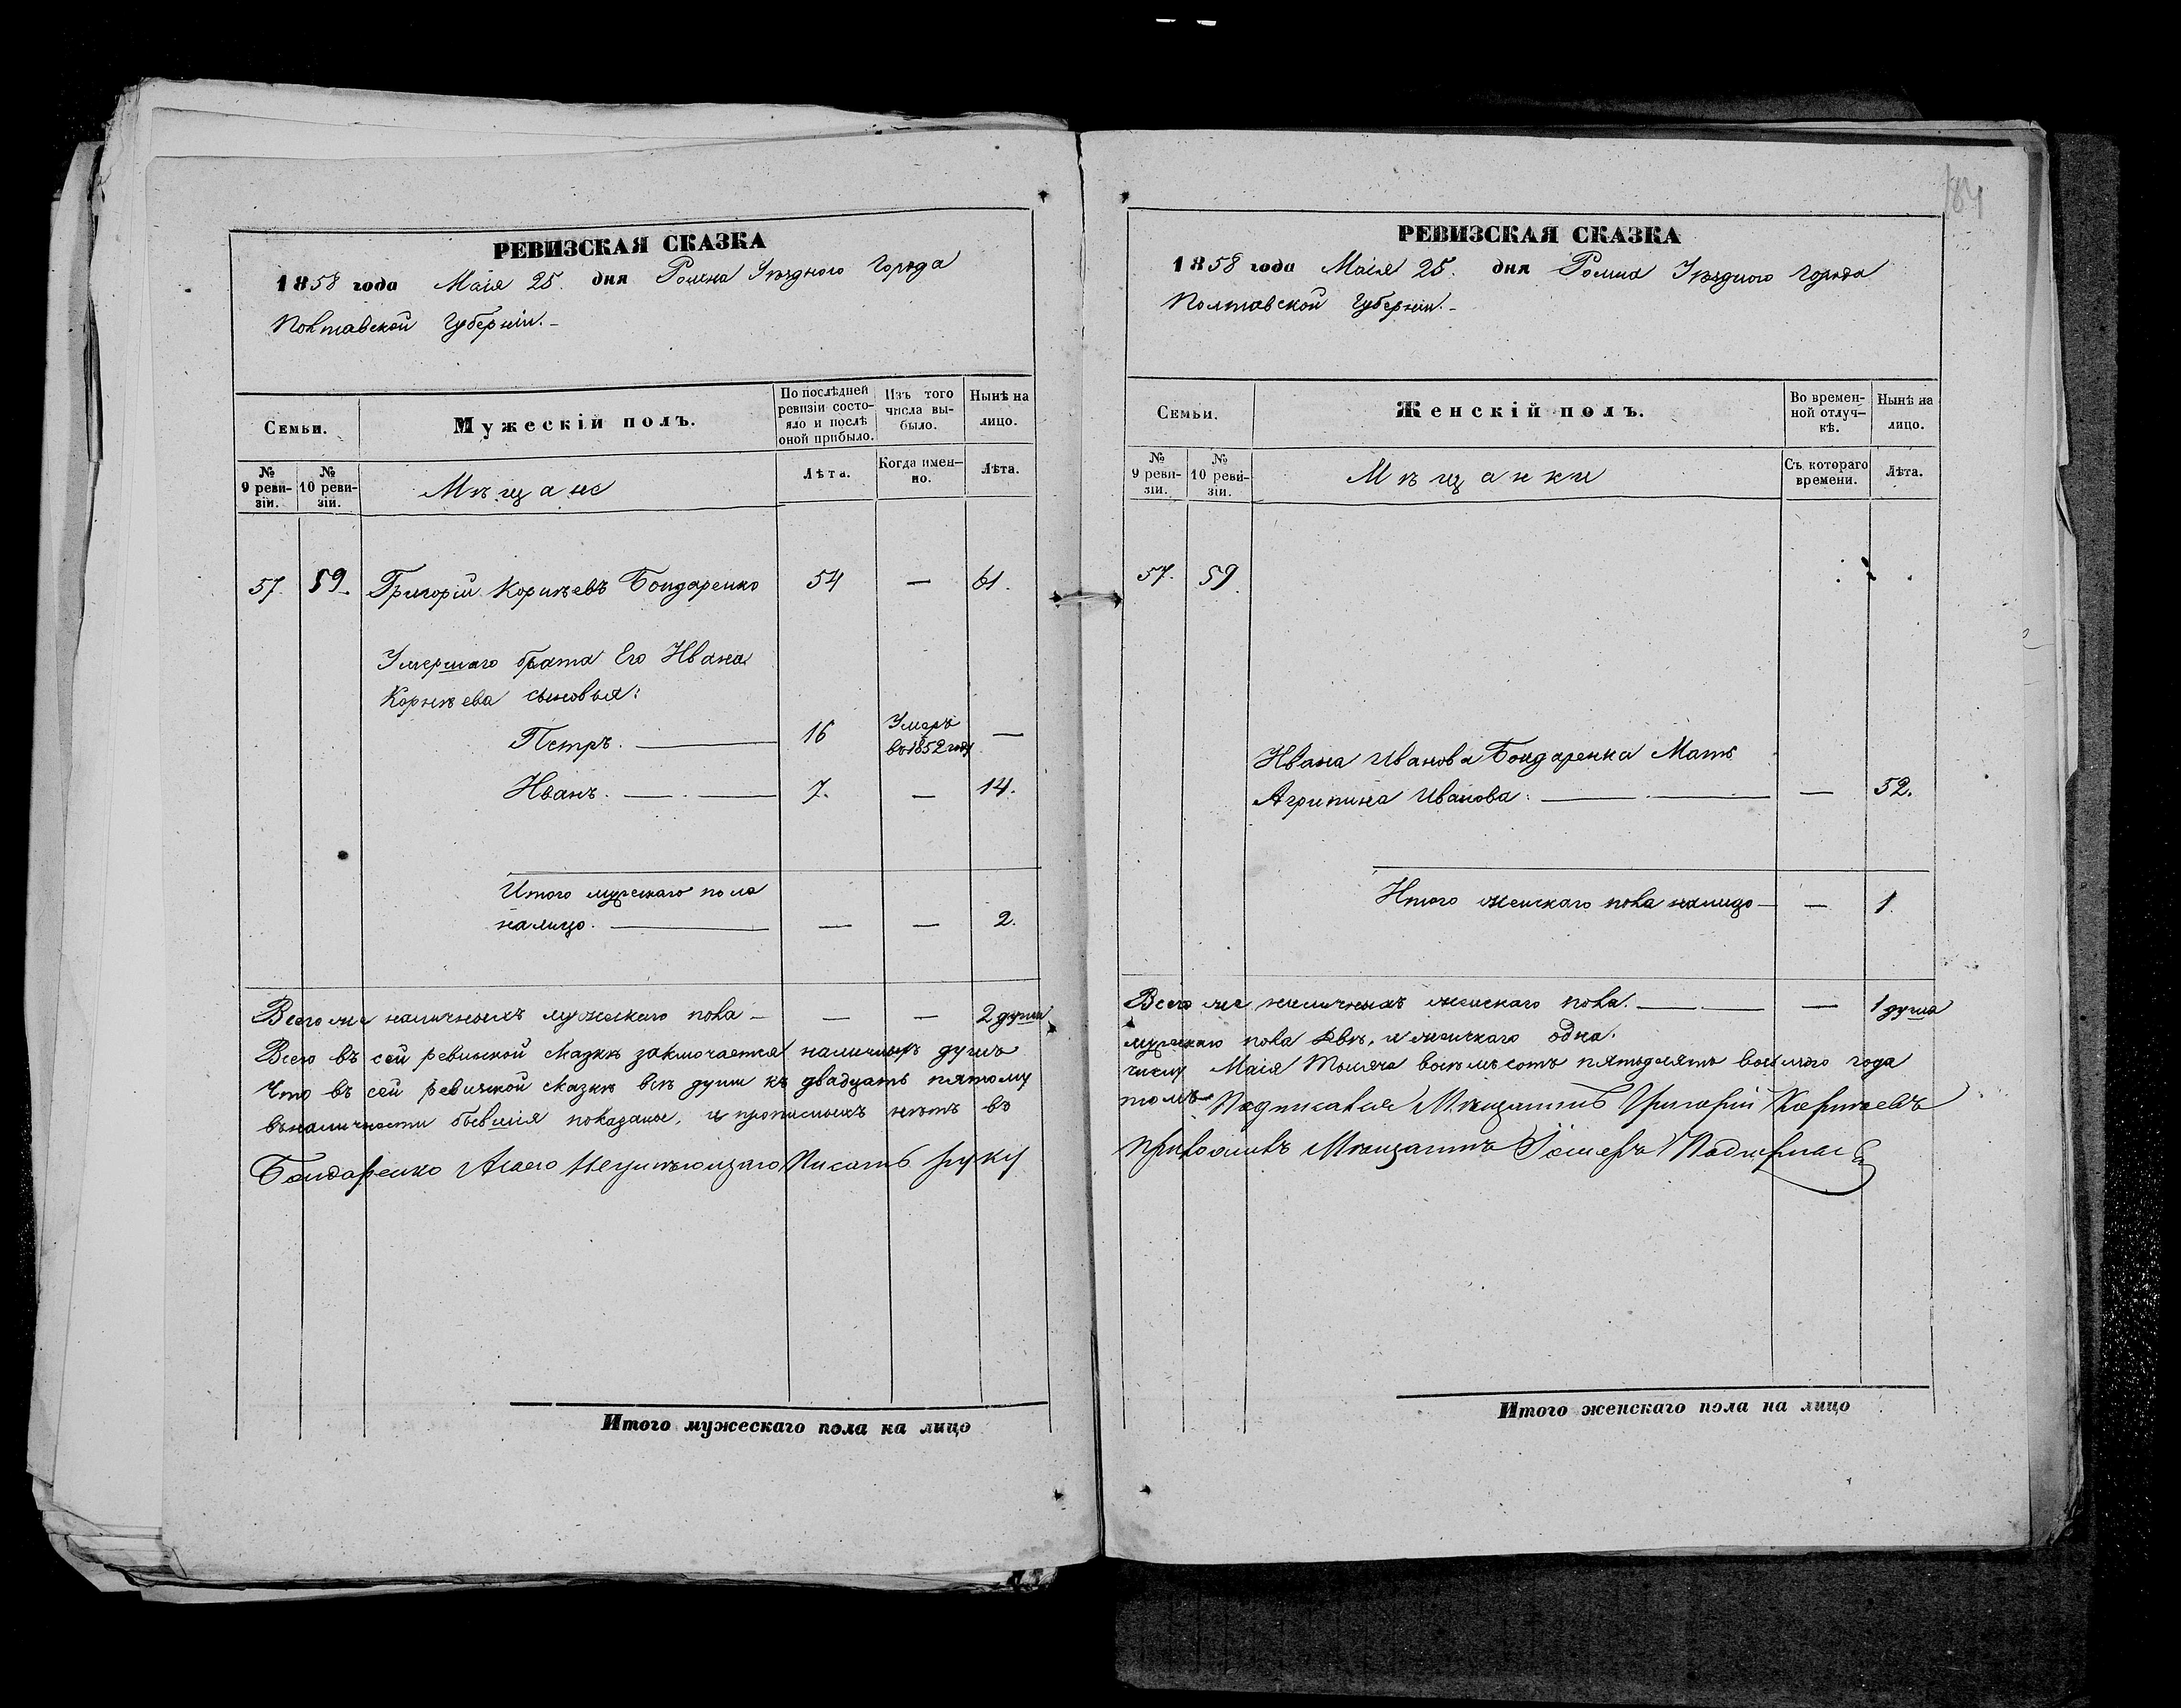 РЕВИЗСКАЯ СКАЗКА
1858 года Маія 25. дня Ромна Уѣзднаго Города
Полтавской Губерніи.
Семьи.
Мужескій полъ.
По послѣдней ревизіи состо-
яло и послѣ оной прибыло.
Изъ того числа вы-
было.
Нынѣ на лицо.
№ 9 реви-
зіи.
№ 10 реви-
зіи.
Мѣщане
Лѣта.
Когда имен-
но.
Лѣта.
57. 59. Григорій Корнѣевъ Бондаренко 54 — 61.
Умершаго брата Его Ивана
Корнѣева сыновья:
Петръ. — 16 Умеръ въ 1852 году —
Иванъ. — 7. — 14.
Итого мужескаго пола
налицо. — — — 2.
Всего же наличныхъ мужескаго пола — — — 2 души
Всего въ сей ревизской сказкѣ заключается наличныхъ душъ
Что въ сей ревизской сказкѣ всѣ души къ двадцать пятому
въналичности бывшія показаны, и прописныхъ нѣтъ въ
Бондаренко Аваего Неумѣющаго Писать руку
Итого мужескаго пола на лицо
184
РЕВИЗСКАЯ СКАЗКА
1858 года Маія 25. дня Ромна Уѣзднаго Города
Полтавской Губерніи.
Семьи.
Женскій полъ.
Во времен-
ной отлуч-
кѣ.
Нынѣ на лицо.
№ 9 реви-
зіи.
№ 10 реви-
зіи.
Мѣщанки
Съ котораго времени.
Лѣта.
57. 59.
Ивана Иванова Бондаренка Мать
Агрипина Иванова: — — 52.
Итого женскаго пола налицо — — 1.
Всего же наличныхъ женскаго пола. — — 1 душа
мужескаго пола двѣ, и женскаго одна.
числу Маія Тысяча восемьсотъ пятдесятъ восьмаго года
томъ Подписался Мѣщанинъ Григорій Корнѣевъ
Приложилъ Мѣщанинъ
Итого женскаго пола на лицо